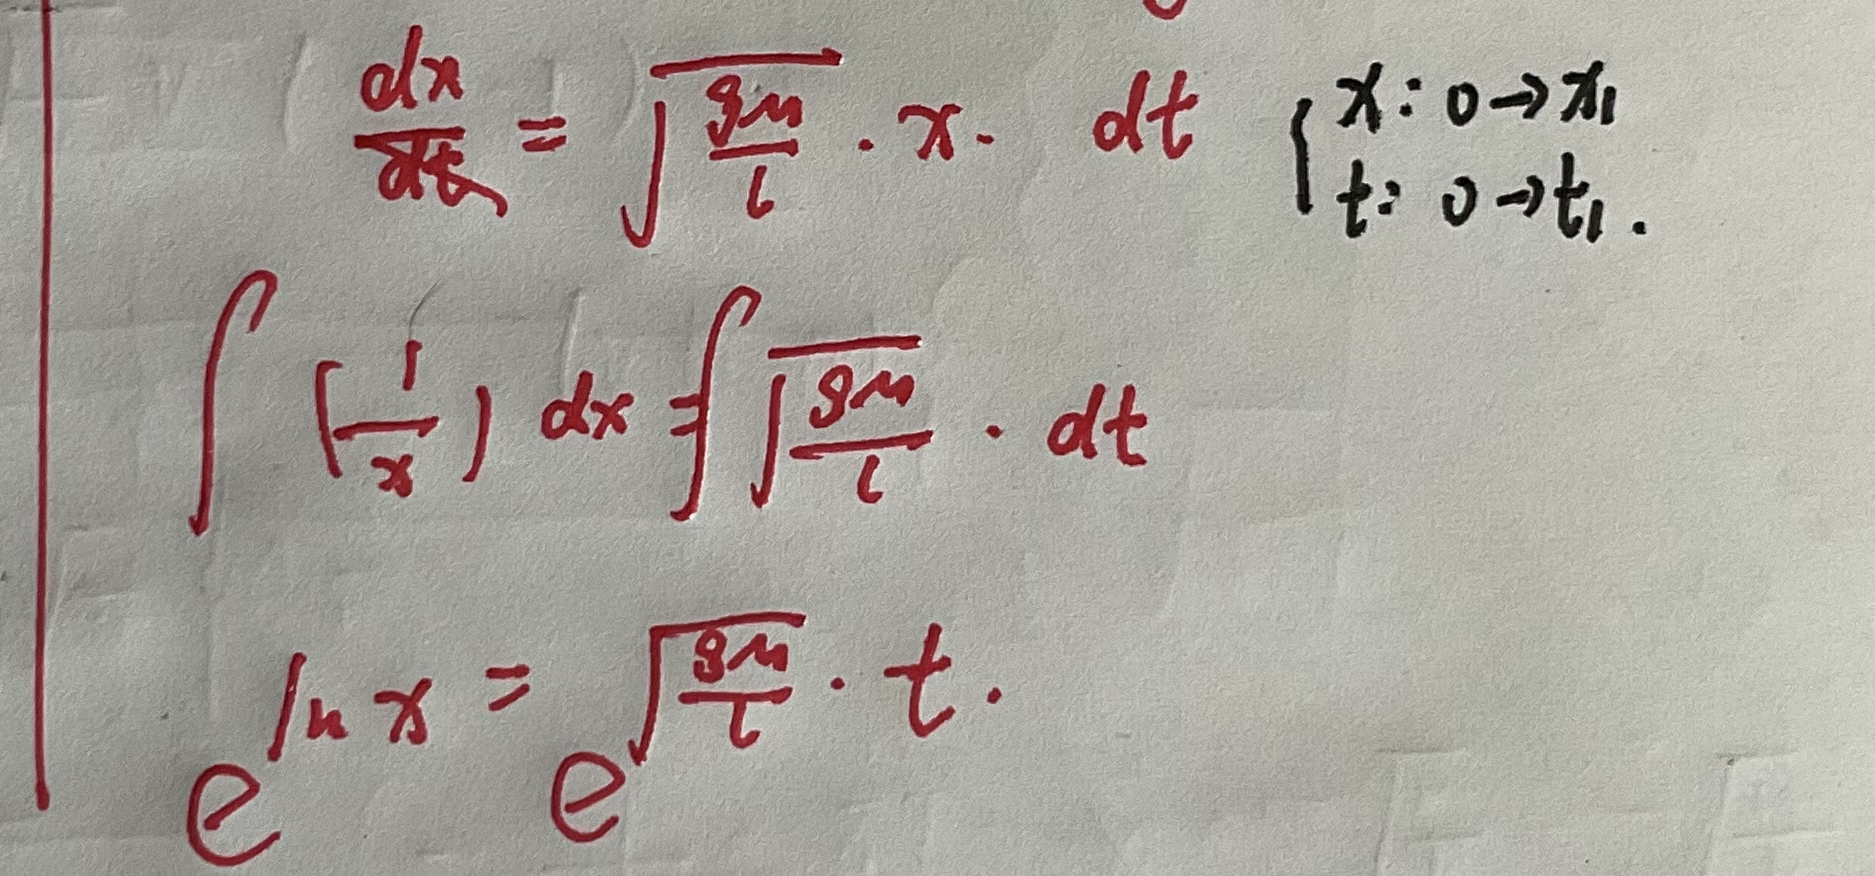 dx/dt = √(gμ/l) · x · dt { x: 0→x₁
t: 0→t₁.
∫ (1/x) dx = ∫ √(gμ/l) · dt
e^(ln x) = e^(√(gμ/l) · t).